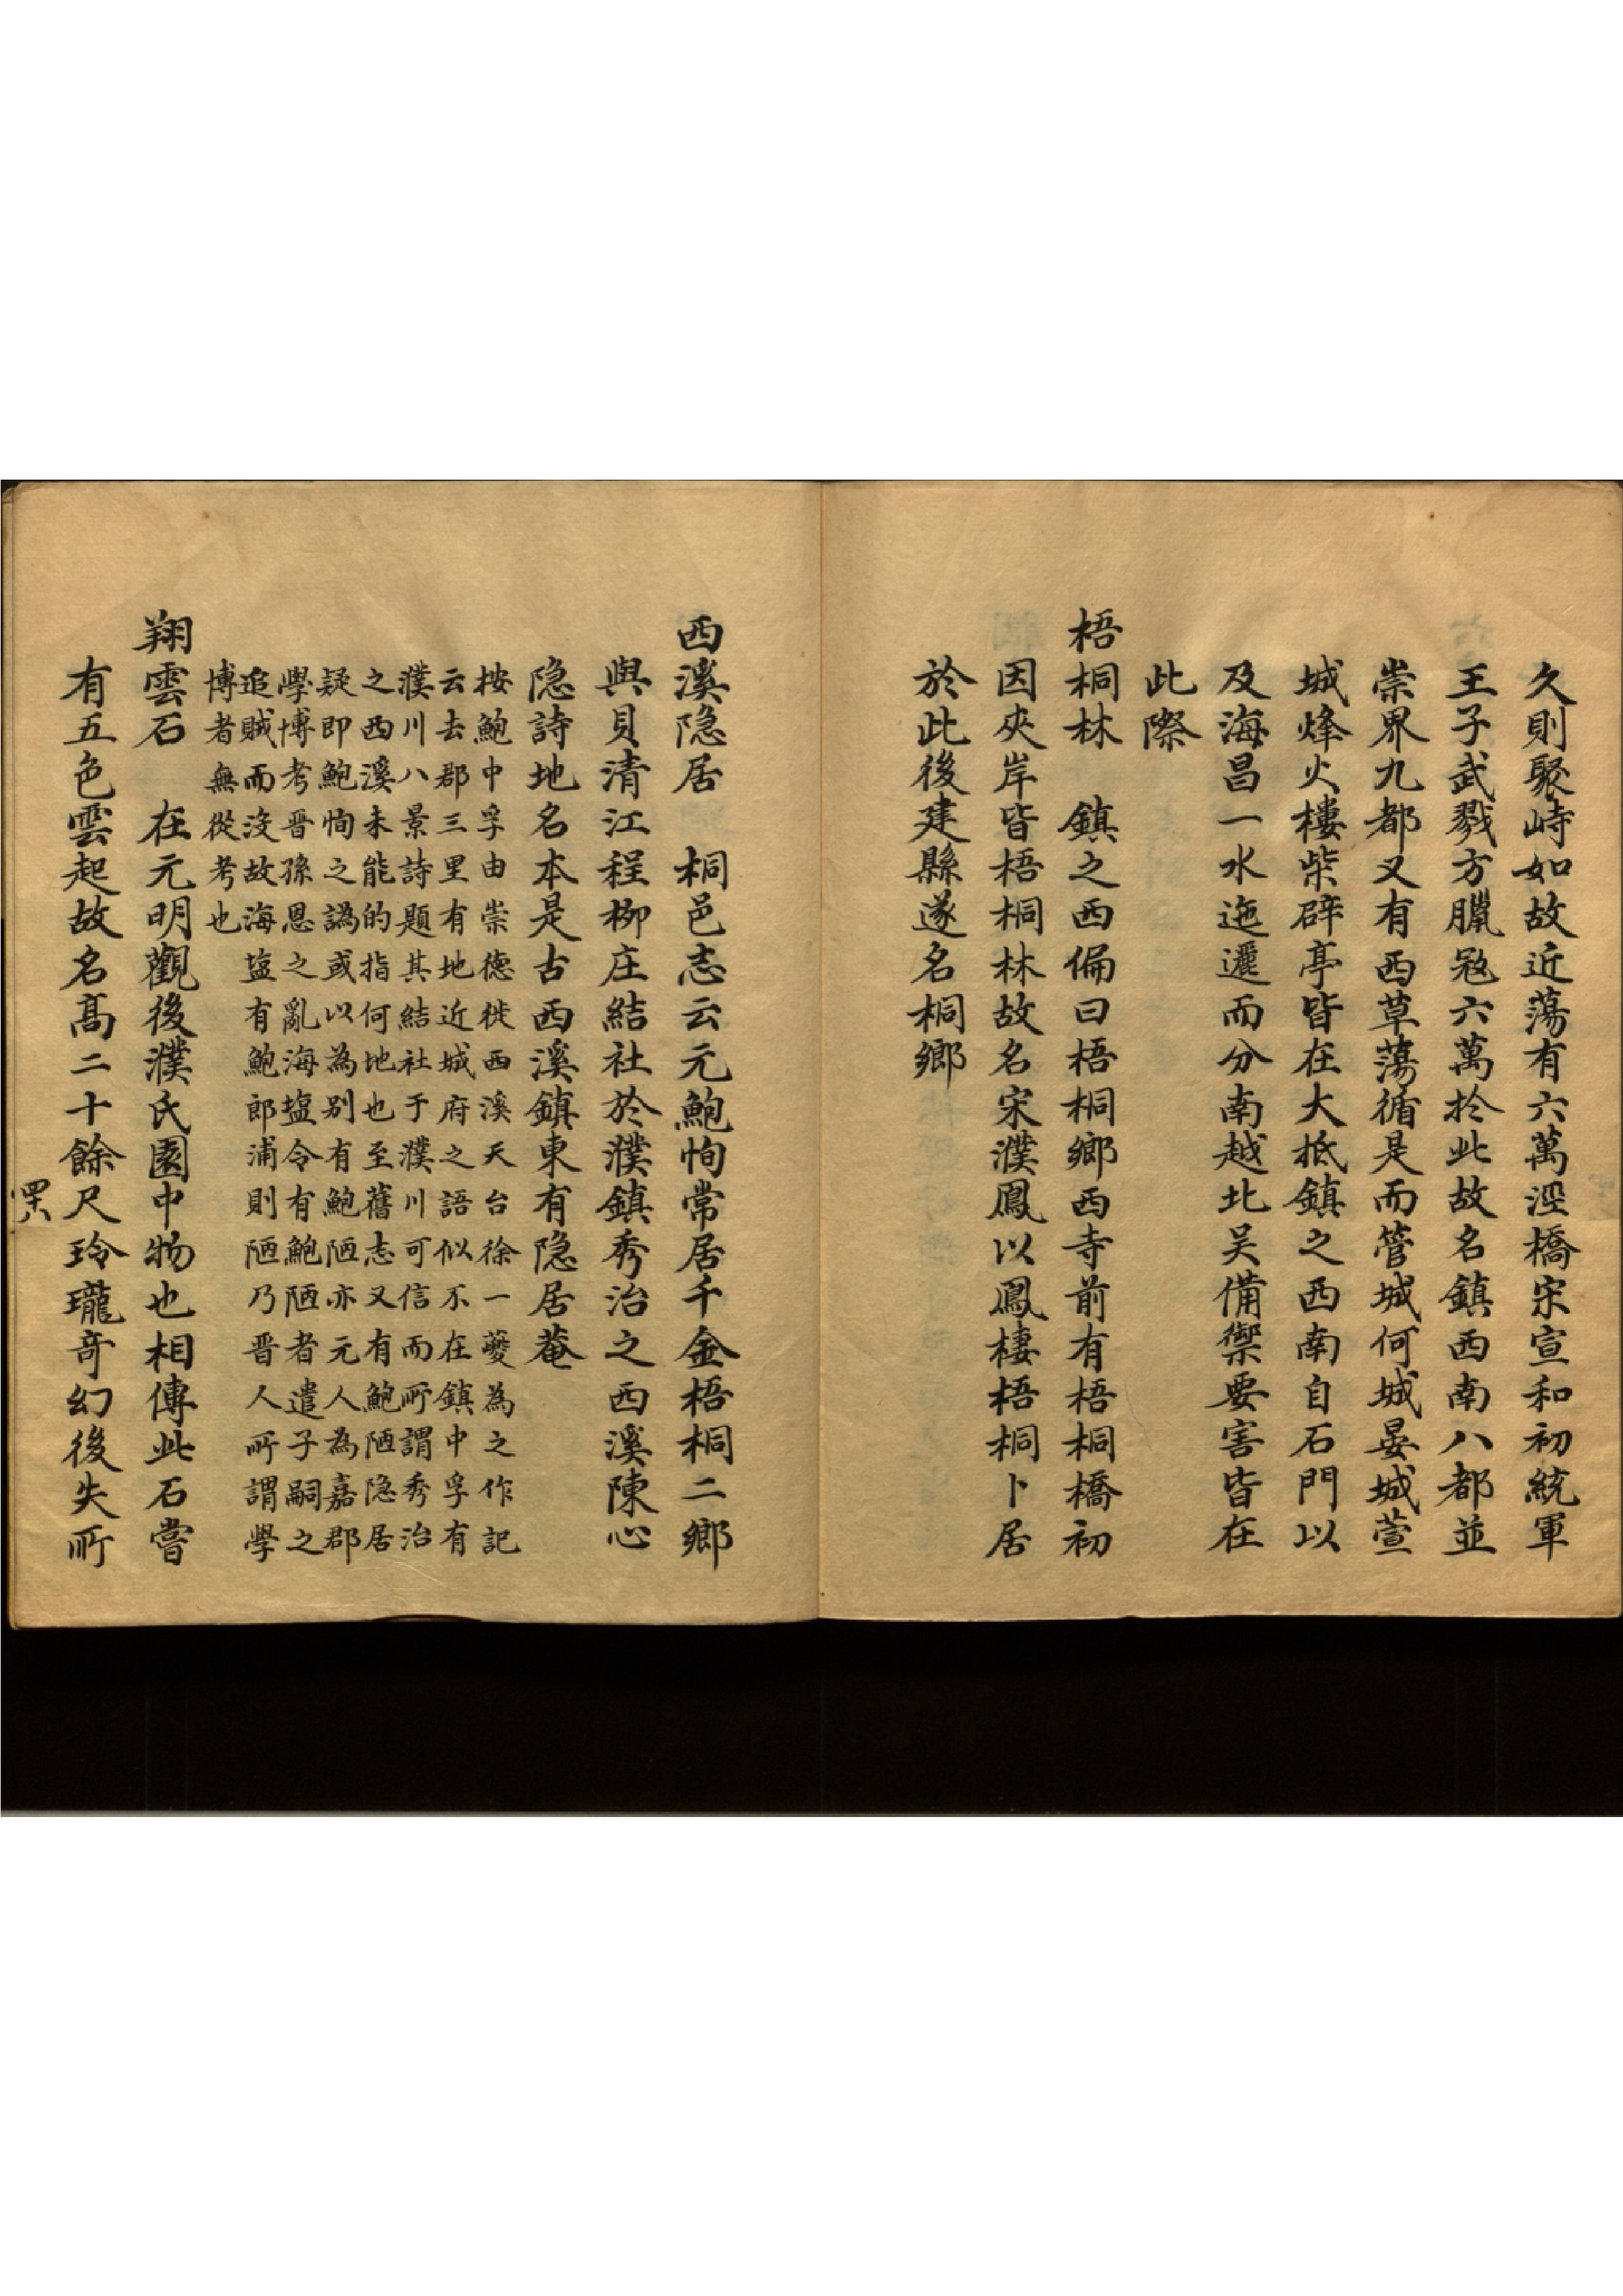 久則聚峙如故近蕩有六萬涇橋宋宣和初統軍
王子武戮方臘冦六萬於此故名鎮西南八都並
崇界九都又有西草蕩循是而管城何城晏城萱
城烽火樓柴辟亭皆在大抵鎮之西南自石門以
及海昌一水迤邐而分南越北吴備禦要害皆在
此際
梧桐林　鎮之西偏曰梧桐鄉西寺前有梧桐橋初
因夾岸皆梧桐林故名宋濮鳳以鳳棲梧桐卜居
於此後建縣遂名桐鄉
西溪隐居　桐邑志云元鮑恂常居千金梧桐二鄉
與貝清江程柳庄結社於濮鎮秀治之西溪陳心
隐詩地名本是古西溪鎮東有隐居菴
按鮑中孚由崇德徙西溪天台徐一夔為之作記
云去郡三里有地近城府之語似不在鎮中孚有
濮川八景詩題其結社于濮川可信而所謂秀治
之西溪未能的指何地也至舊志又有鮑陋隐居
疑即鮑恂之譌或以為别有鮑陋亦元人為嘉郡
學博考晋孫恩之亂海塩令有鮑陋者遣子嗣之
追賊而没故海塩有鮑郎浦則陋乃晋人所謂學
博者無從考也
翔雲石　在元明觀後濮氏園中物也相傳此石嘗
有五色雲起故名髙二十餘尺玲瓏竒幻後失所